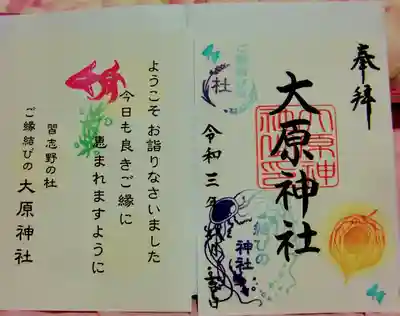 奉拝
大原神社
ご縁結びの
社
結びの
神社
令和三年
ようこそ お詣りなさいました
今日も良きご縁に
恵まれますように
習志野の杜
ご縁結びの 大原神社